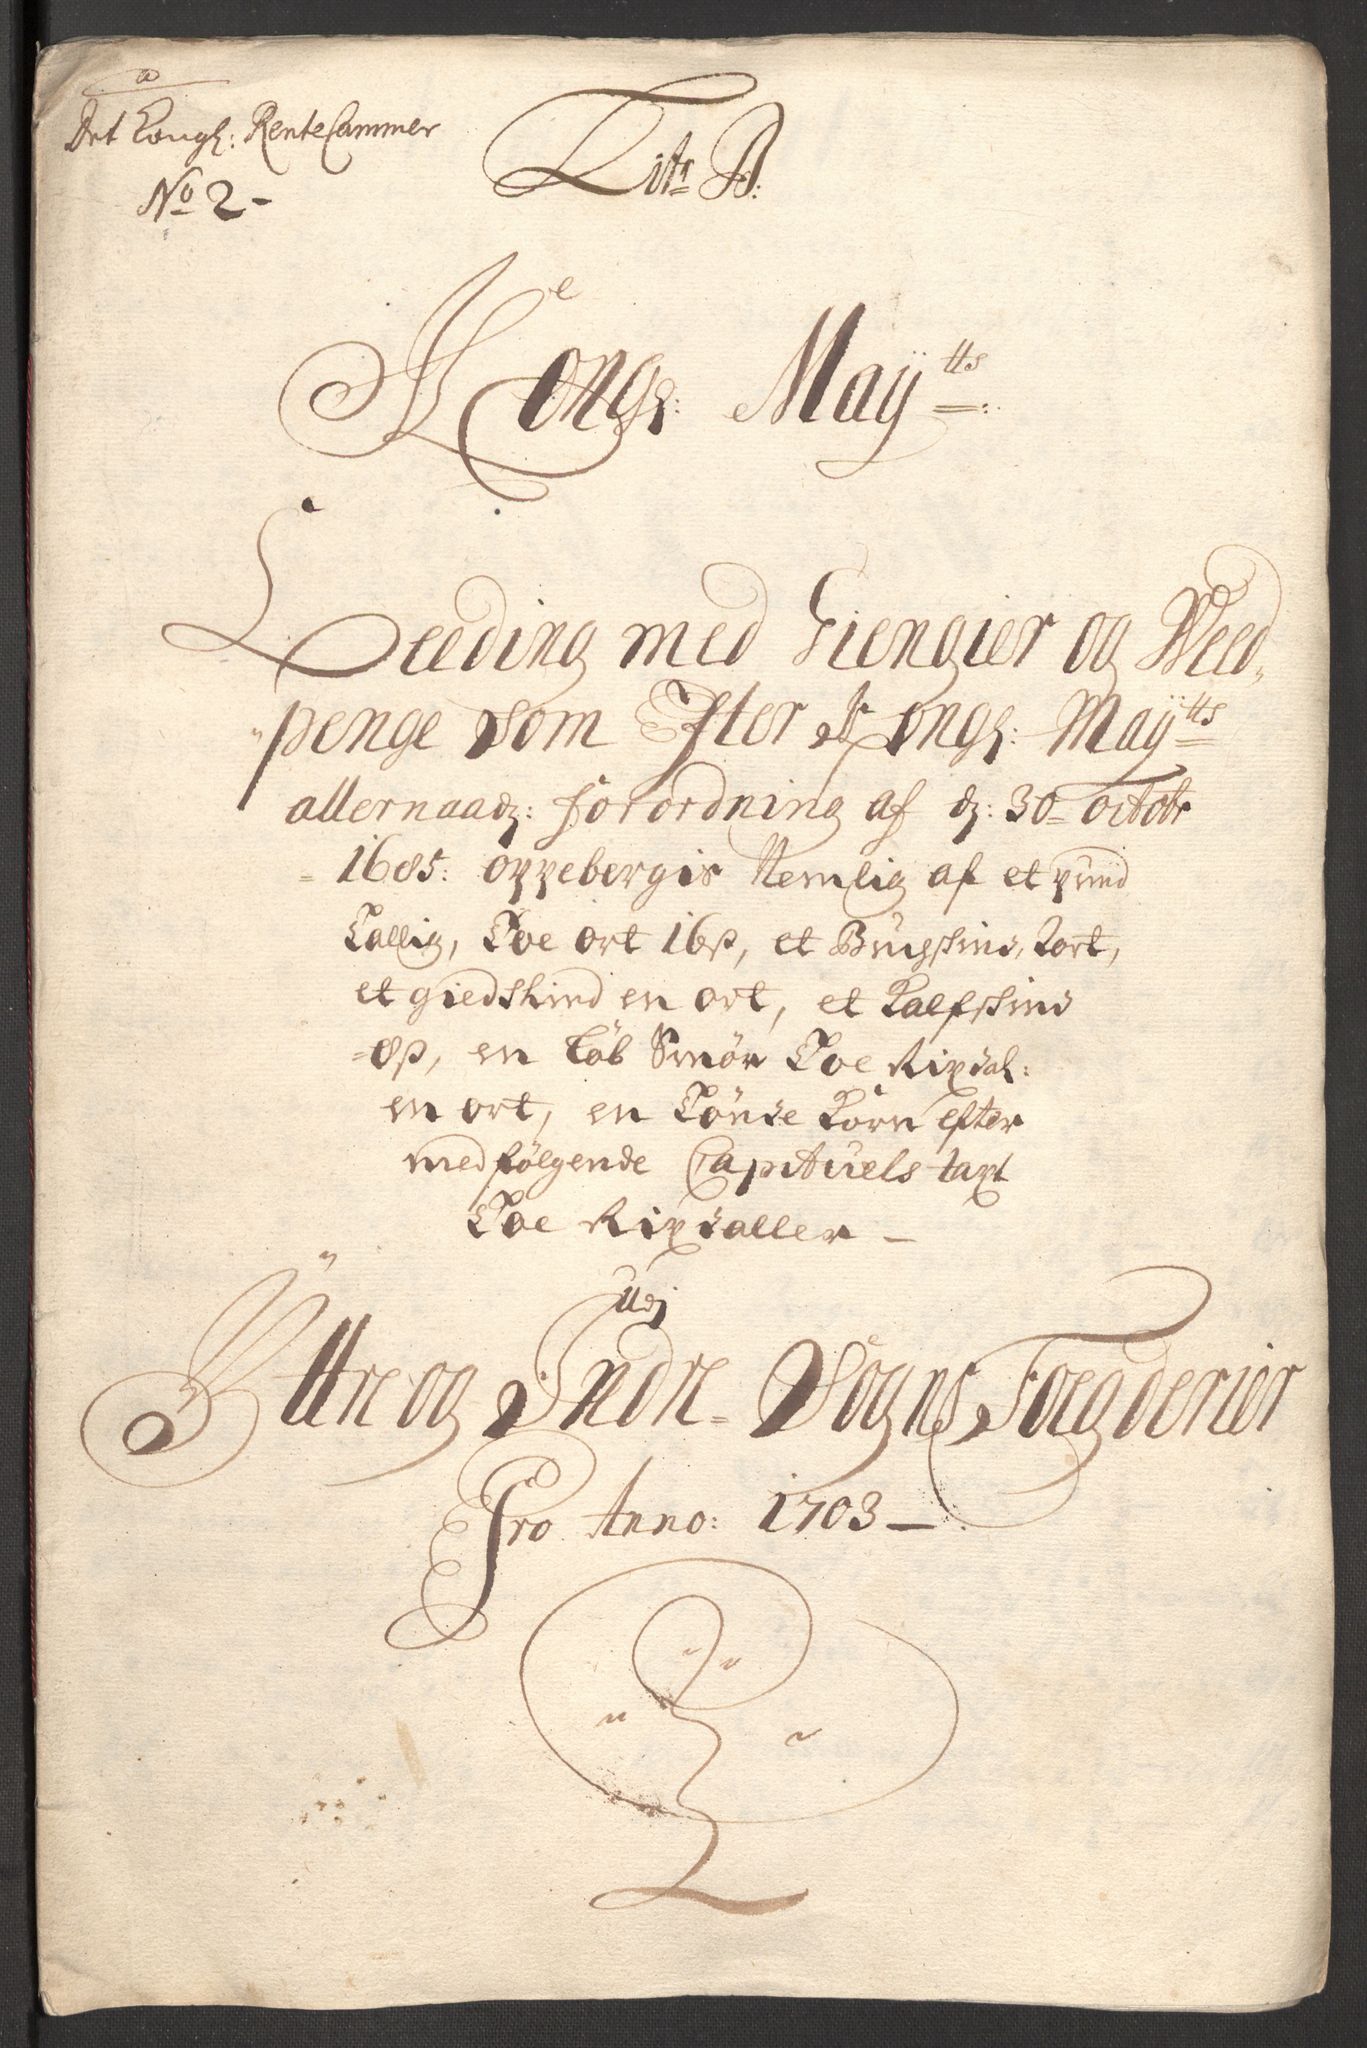 a
Det Kongl: RenteCammer
No 2-
Litr B:
Kongl: Maytts:
Leeding med Giengier og Weed„
penge som Efter Kongl: Maytts
allernaadg: forordning af dg: 30 octobr
1685: oppebergis Nemlig af et pund
Tallig, Toe ort 16ß, et Bugskind, 2ort,
et giedskind en ort, et Kalfskind
8ß, en Løb Smør Toe Rixdal:
en ort, en Tønde Korn efter
medfølgende Capituels taxt
Toe Rixdaller -
Udj
Yttre og Indre Sogns Foegderier
Pro Anno: 1703